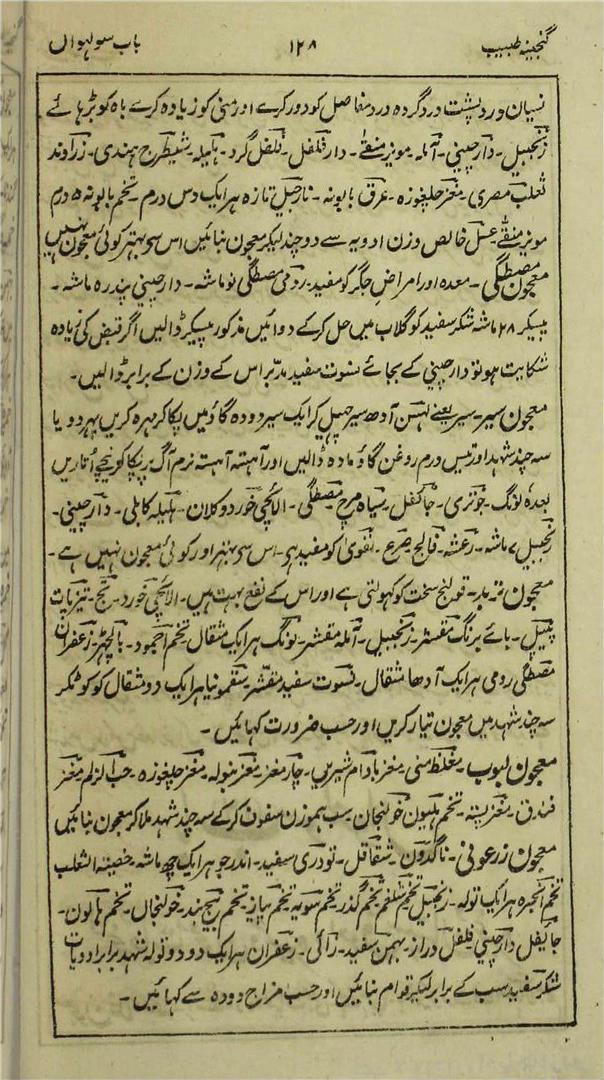 گنجینہ طبیب ۱۲۸ باب سولہواں
نسیان و درد پشت درد گردہ درد مفاصل کو دور کرے اور منی کو زیادہ کرے باہ کو بڑہائے
زنجبیل۔ دارچینی۔ آملہ۔ مویز منقے۔ دار فلفل۔ فلفل گرد۔ ہلیلہ۔ شیطرج ہندی۔ زراوند
ثعلب مصری۔ مغز چلغوزہ۔ عرق بابونہ۔ نارجیل تازہ ہر ایک دس درم۔ تخم بابونہ ۵ درم
مویز منقے عسل خالص وزن ادویہ سے دوچند لیکر معجون بنائیں اس سو بہتر کوئی معجون نہیں
معجون مصطگی۔ معدہ اور امراض جگر کو مفید۔ رومی مصطگی نو ماشہ۔ دارچینی پندرہ ماشہ۔
پیسکر ۲۸ ماشہ شکر سفید کو گلاب میں حل کرکے دوائیں مذکور پیسکر ڈالیں اگر قبض کی زیادہ
شکایت ہو تو دارچینی کے بجائے سنوت سفید مدبر اس کے وزن کے برابر ڈالیں۔
معجون سیر۔ سیر یعنے لہسن آدھ سیر چھیل کر ایک سیر دودہ گاؤ میں پکا کر مہرہ کریں پہر دو یا
سہ چند شہد اور تیس درم روغن گاؤ مادہ ڈالیں اور آہستہ آہستہ نرم آگ پر پکا کر نیچے اُتاریں
بعدہٗ لونگ۔ جوتری۔ جائفل۔ سیاہ مرچ مصطگی۔ الائچی خورد و کلان۔ ہلیلہ کابلی۔ دارچینی۔
زنجبیل ۷ ماشہ۔ رعشہ۔ فالج۔ صرع۔ لقویٰ کو مفید ہے۔ اس سو بہتر اور کوئی معجون نہیں ہے۔
معجون قولنج سخت کو کہولتی ہے اور اس کے نفع بہت ہیں۔ الائچی خورد۔ تج۔ تیزپات
پیپل۔ بائے برنگ مقشر۔ زنجبیل۔ آملہ مقشر۔ لونگ ہر ایک مثقال تخم اجمود۔ بالچھڑ۔ زعفران
مصطگی رومی ہر ایک آدھا مثقال۔ نسوت سفید مقشر۔ سقمونیا ہر ایک دو مثقال کو کوٹکر
سہ چند شہد میں معجون تیار کریں اور حسب ضرورت کہائیں۔
معجون لبوب۔ مغلظ منی۔ مغز بادام شیریں۔ چار مغز۔ مغز بنولہ۔ مغز چلغوزہ۔ حب الزلم مغز
فندق۔ مغز پستہ۔ تخم ہلیون خولنجان۔ سب ہموزن سفوف کرکے سہ چند شہد ملاکر معجون بنائیں
معجون زرعونی۔ ناگدون۔ شقاقل۔ تودری سفید۔ اندرجو ہر ایک چھ ماشہ۔ خصیۃ الثعلب
تخم انجرہ ہر ایک تولہ۔ زنجبیل تخم شلغم تخم گذر تخم سویہ تخم پیاز۔ تخم خولنجاں۔ تخم ہالون۔
جائفل دارچینی فلفل دراز۔ بہمن سفید۔ رائی۔ زعفران ہر ایک دو دو تولہ شہد برابر ادویات
شکر سفید سب کے برابر لیکر قوام بنائیں اور حسب مزاج دودہ سے کہائیں۔